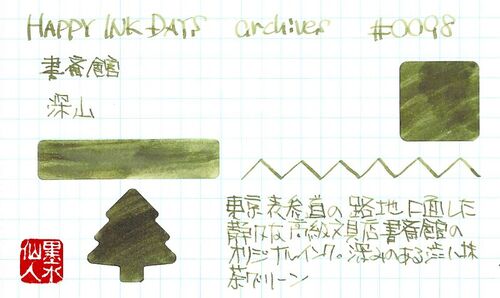 HAPPY INK DAYS archives #0098
書斎館
深山
東京表参道の路地に面した
静かな高級文具店書斎館の
オリジナルインク。深みのある渋い抹
茶グリーン
墨水
仙人